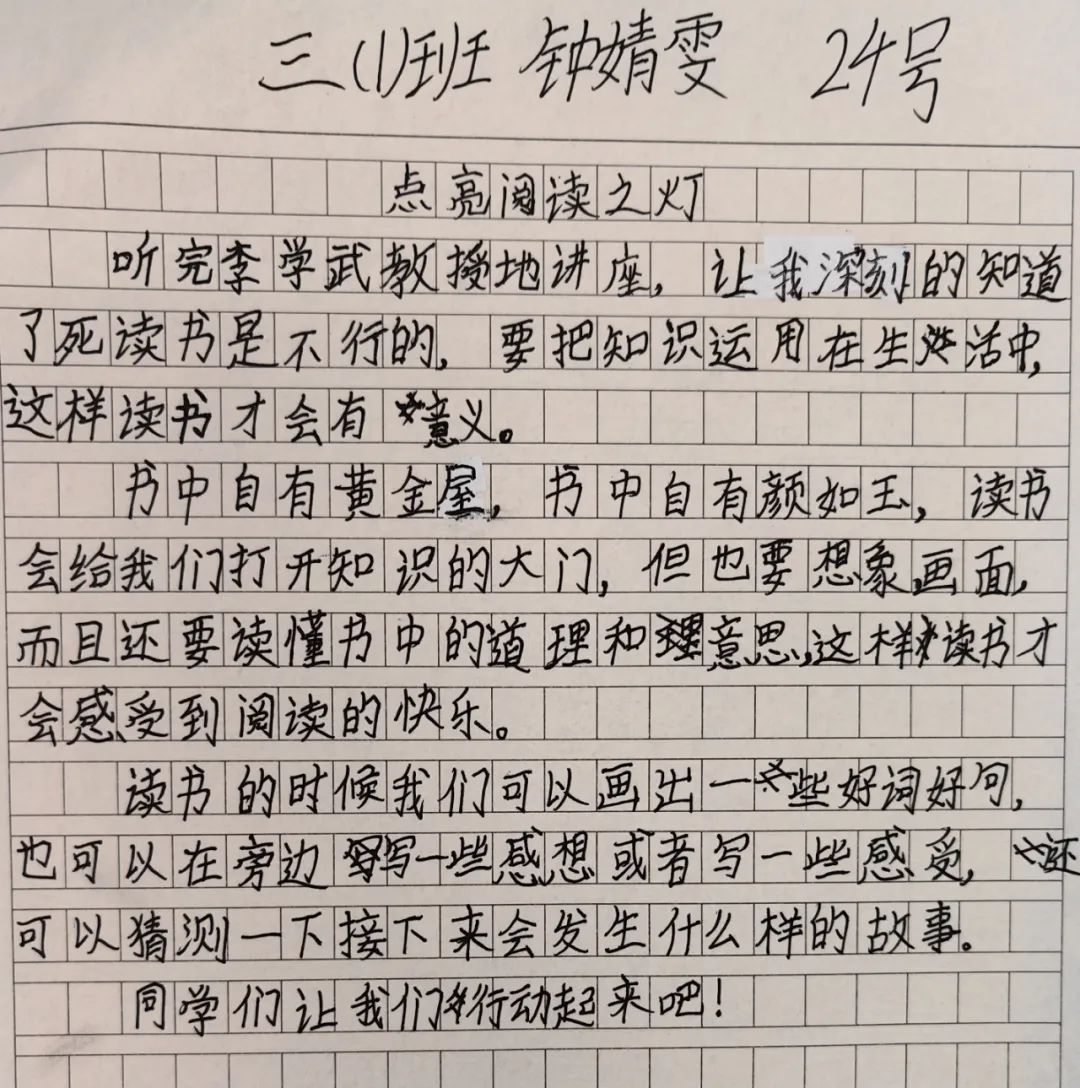 三(1)班 钟婧雯 24号
点亮阅读之灯
听完李学武教授地讲座，让我深刻的知道
了死读书是不行的，要把知识运用在生活中，
这样读书才会有意义。
书中自有黄金屋，书中自有颜如玉，读书
会给我们打开知识的大门，但也要想象画面，
而且还要读懂书中的道理和意思，这样读书才
会感受到阅读的快乐。
读书的时候我们可以画出一些好词好句，
也可以在旁边写一些感想或者写一些感受，还
可以猜测一下接下来会发生什么样的故事。
同学们让我们行动起来吧！